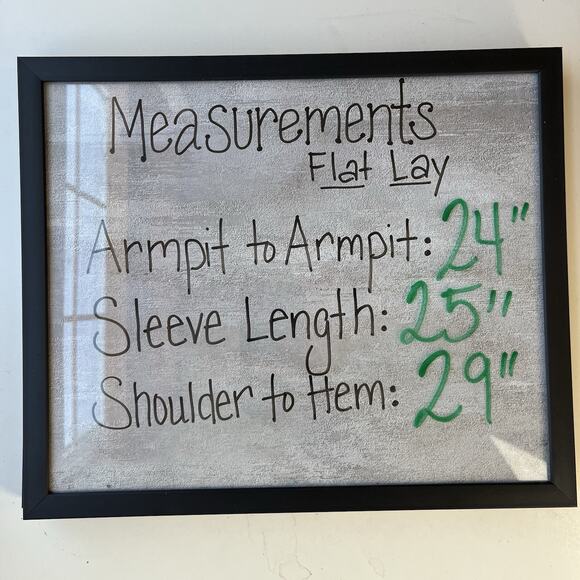 Measurements
Flat Lay
Armpit to Armpit: 24"
Sleeve Length: 25"
Shoulder to Hem: 29"